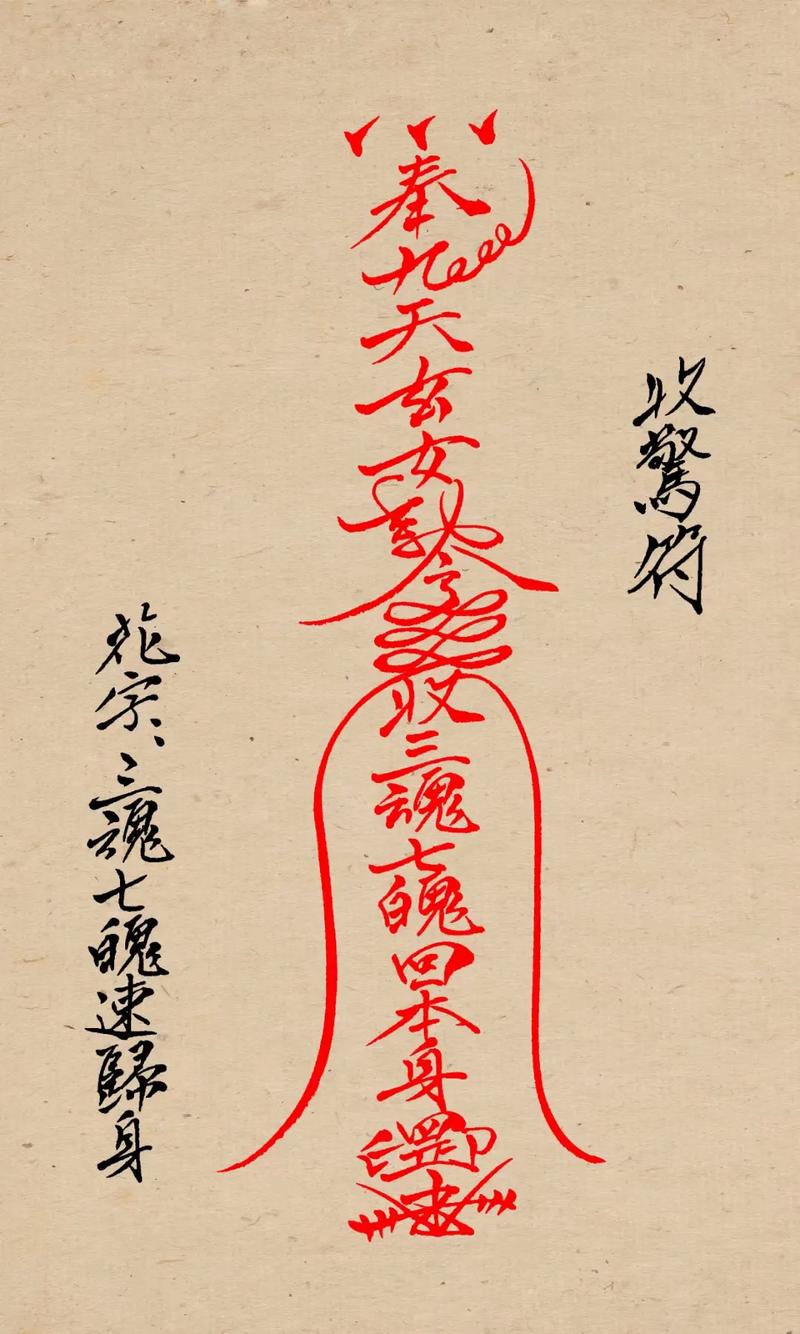 收驚符
奉九天玄女敕令收三魂七魄回本身罡
花字、三魂七魄速歸身